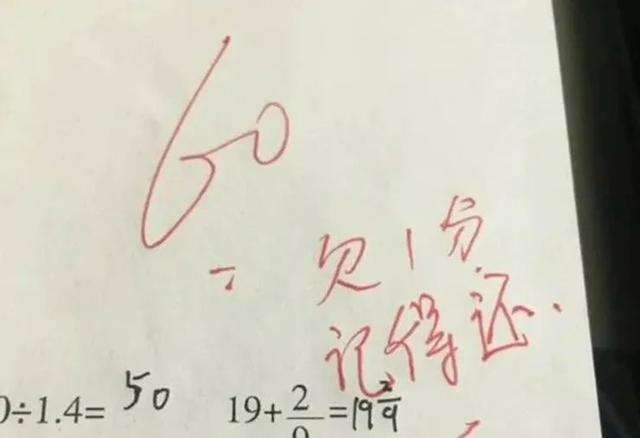 60
欠1分
记得还.
0÷1.4= 50 19+2/9=19 2/9